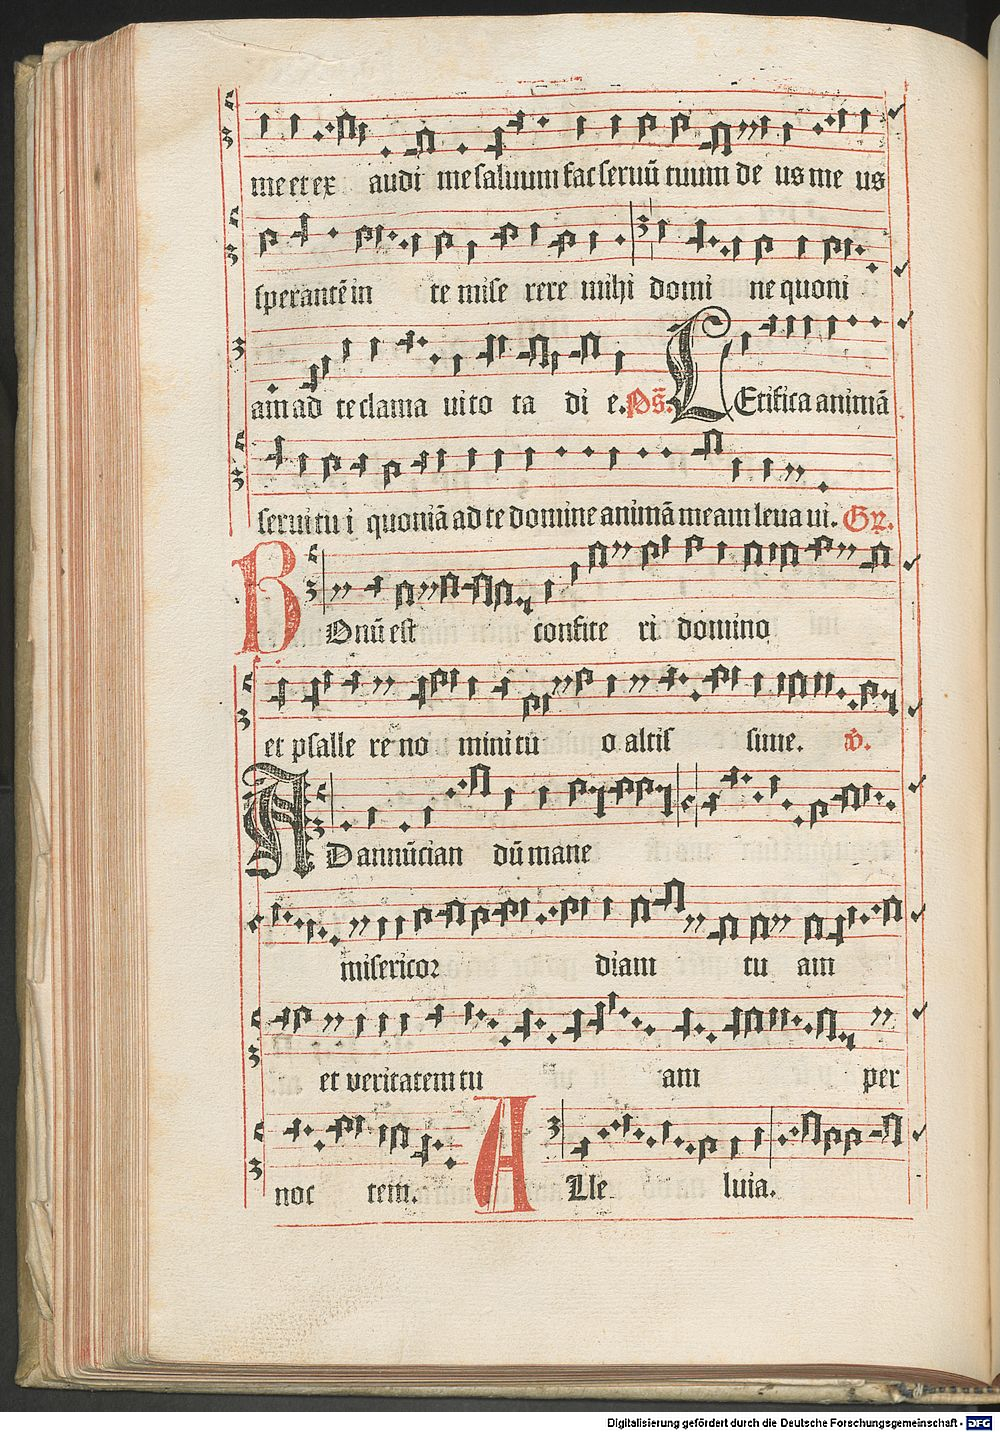 me et ex audi me saluum fac seruū tuum de us me us
sperantē in te mise rere mihi domi ne quoni
am ad te clama ui to ta di e. Ps̄. LEtifica animā
serui tu i quoniā ad te domine animā meam leua ui. Gr̄.
BOnū est confite ri domino
et psalle re no mini tu o altis sime. v̄.
ADannūcian dū mane
misericor diam tu am
et veritatem tu am per
noc tem. ALle luia.
Digitalisierung gefördert durch die Deutsche Forschungsgemeinschaft - DFG